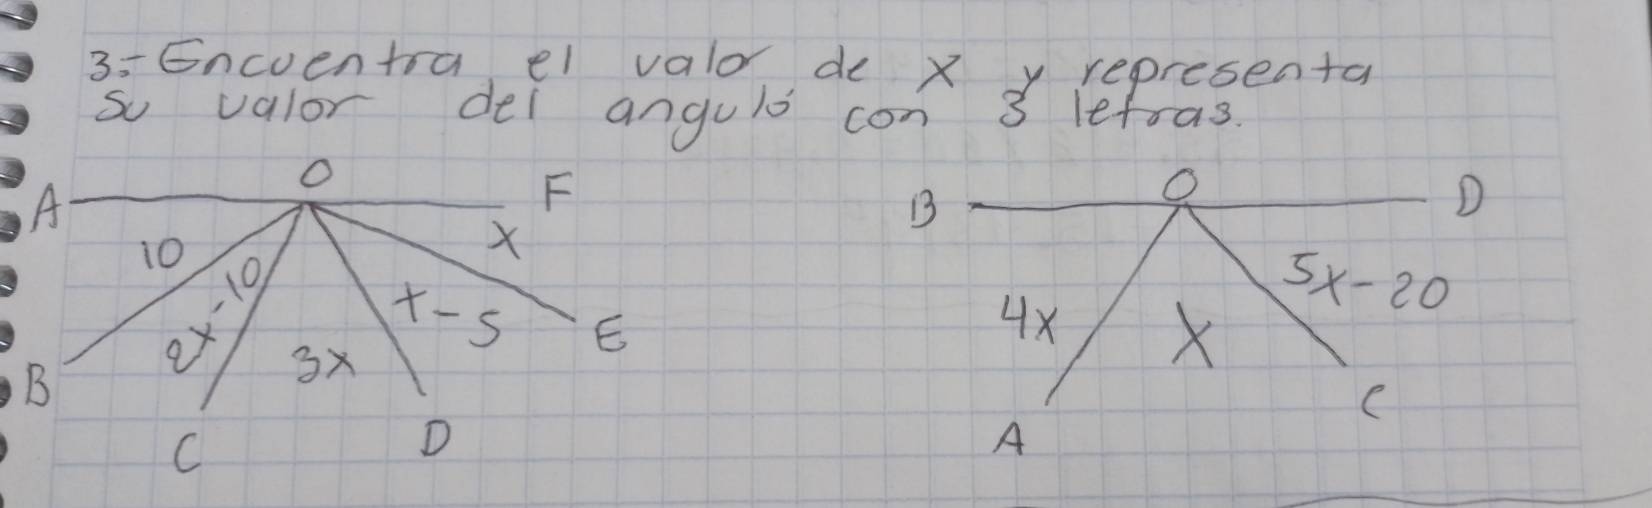 3.- Encuentra el valor de x y representa
su valor del angulo con 3 letras.
A O F
10 x
2x-10 x-5
B 3x E
C D
B O D
4x x 5x-20
A C